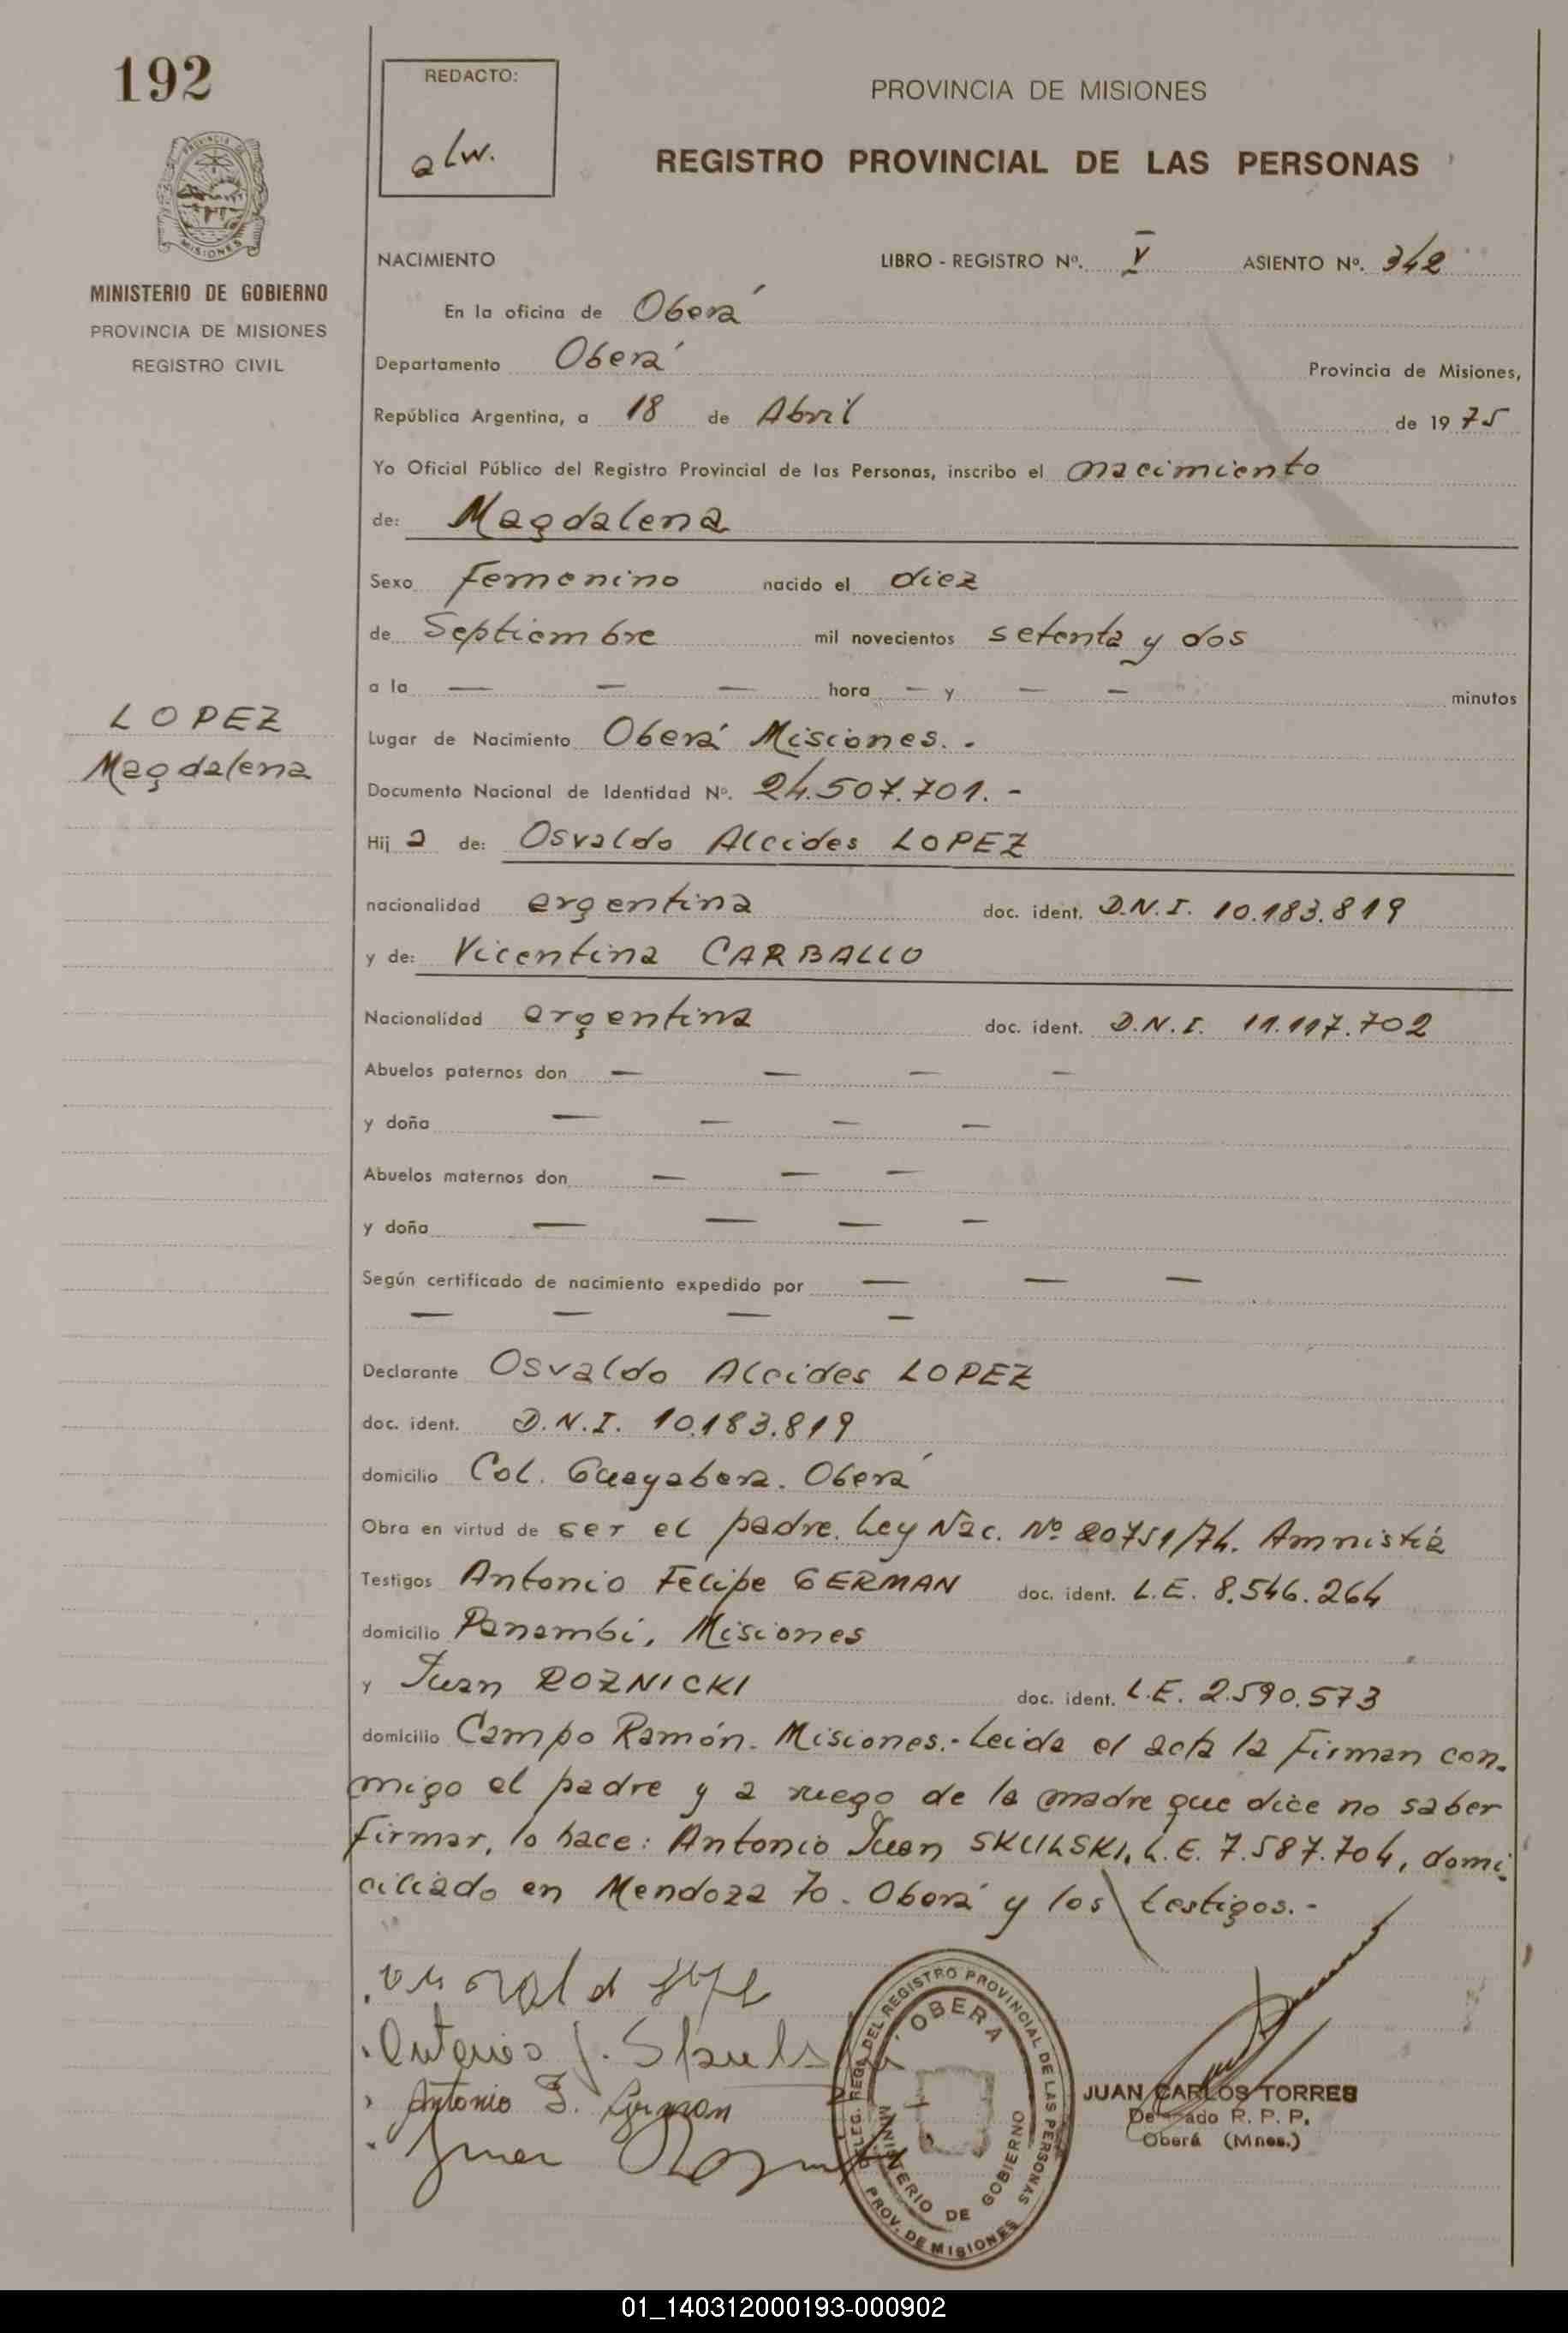 192
REDACTO:
alw.
PROVINCIA DE MISIONES
REGISTRO PROVINCIAL DE LAS PERSONAS
PROVINCIA DE
MISIONES
MINISTERIO DE GOBIERNO
PROVINCIA DE MISIONES
REGISTRO CIVIL
NACIMIENTO LIBRO - REGISTRO Nº. V ASIENTO Nº. 342
En la oficina de Oberá
Departamento Oberá Provincia de Misiones,
República Argentina, a 18 de Abril de 1975
Yo Oficial Público del Registro Provincial de las Personas, inscribo el nacimiento
de: Magdalena
Sexo Femenino nacido el diez
de Septiembre mil novecientos setenta y dos
a la — — — hora — y — — minutos
LOPEZ
Magdalena
Lugar de Nacimiento Oberá Misiones. -
Documento Nacional de Identidad Nº. 24.507.701. -
Hij a de: Osvaldo Alcides LOPEZ
nacionalidad argentina doc. ident. D.N.I. 10.183.819
y de: Vicentina CARBALLO
Nacionalidad argentina doc. ident. D.N.I. 11.117.702
Abuelos paternos don — — — —
y doña — — — —
Abuelos maternos don — — —
y doña — — — —
Según certificado de nacimiento expedido por — — —
— — — —
Declarante Osvaldo Alcides LOPEZ
doc. ident. D.N.I. 10.183.819
domicilio Col. Guayabera. Oberá
Obra en virtud de ser el padre. Ley Nac. Nº 20751/74. Amnistía
Testigos Antonio Felipe GERMAN doc. ident. L.E. 8.546.264
domicilio Panambí, Misiones
y Juan ROZNICKI doc. ident. L.E. 2.590.573
domicilio Campo Ramón. Misiones.- Leida el acta la firman con-
migo el padre y a ruego de la madre que dice no saber
firmar, lo hace: Antonio Juan SKULSKI, L.E. 7.587.704, domi-
ciliado en Mendoza 70. Oberá y los testigos. -
Antonio J. Skuls
Antonio F. German
Juan Rozn
DELEG. REGL. DEL REGISTRO PROVINCIAL DE LAS PERSONAS
OBERA
MINISTERIO DE GOBIERNO
PROV. DE MISIONES
JUAN CARLOS TORRES
Delegado R. P. P.
Oberá (Mnes.)
01_140312000193-000902